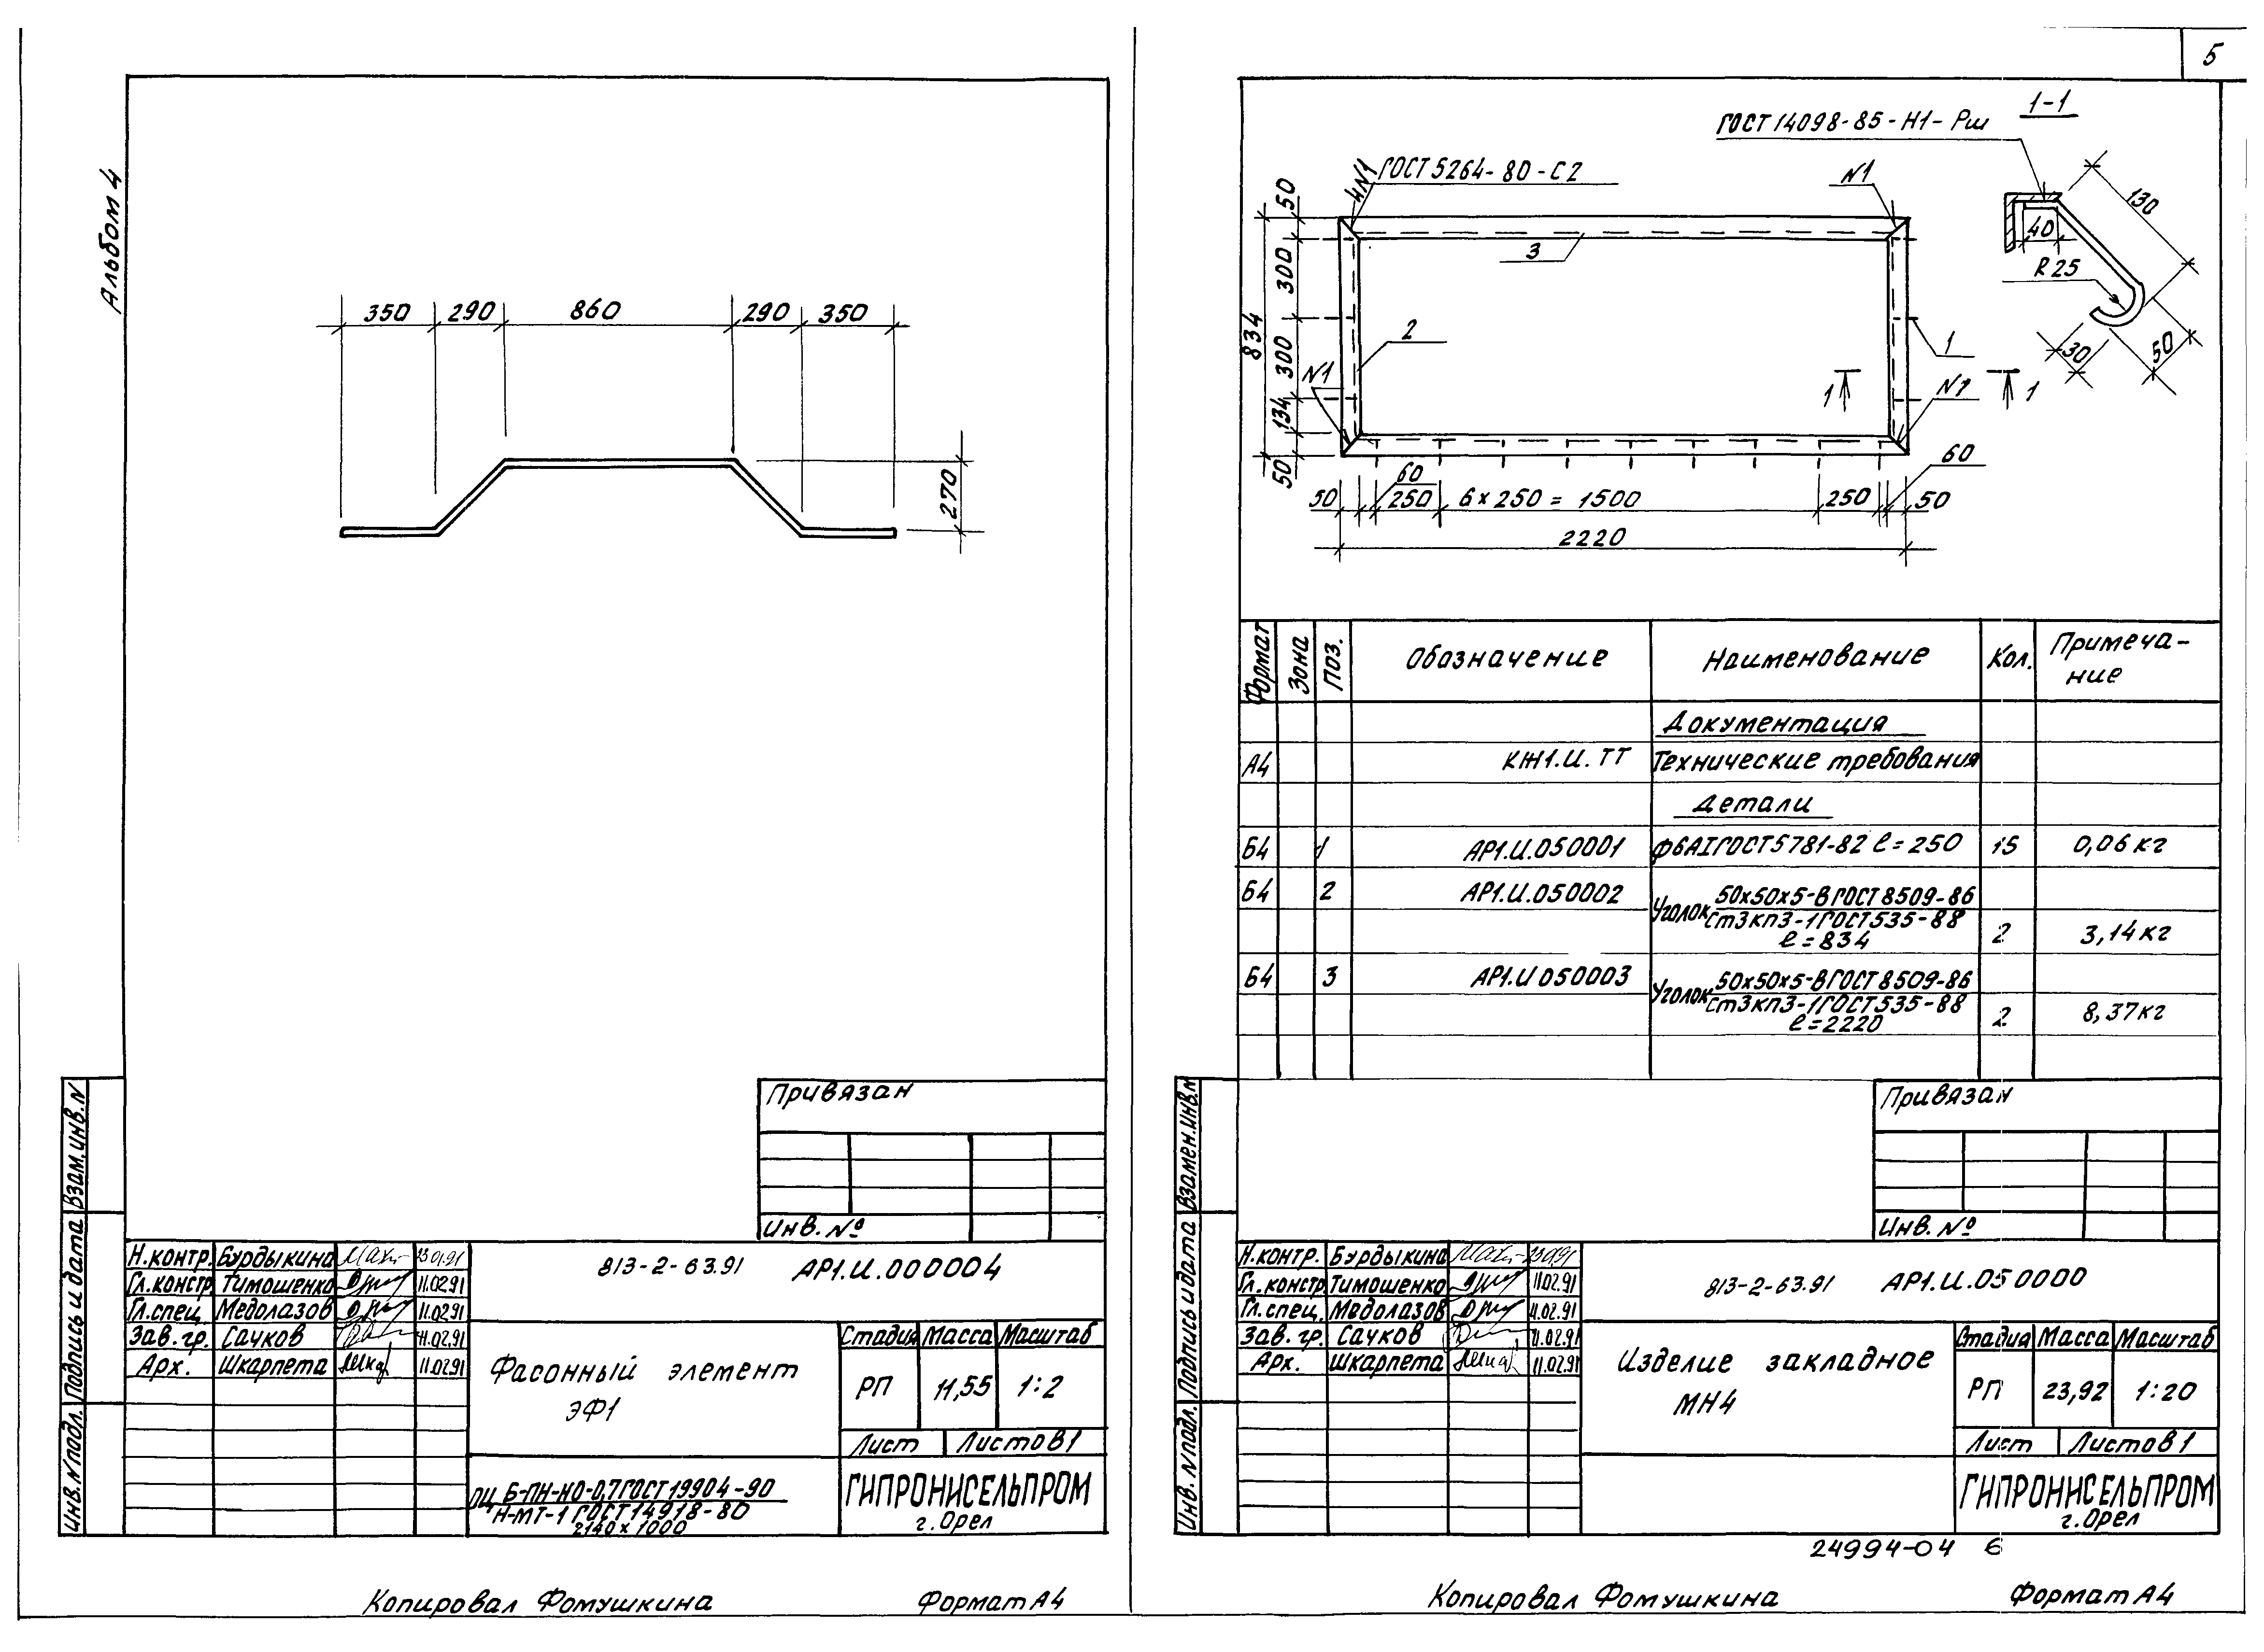 Альбом 4
350 290 860 290 350
270
Привязан
Инв. №
Взам.инв.N
Подпись и дата
Инв.N подл.
Н.контр. Бурдыкина 23.01.91
Гл.констр. Тимошенко 11.02.91
Гл.спец. Медолазов 11.02.91
Зав.гр. Сачков 11.02.91
Арх. Шкарпета 11.02.91
813-2-63.91 АР1.И.000004
Фасонный элемент
ЭФ1
Стадия Масса Масштаб
РП 11,55 1:2
Лист Листов 1
ОЦ Б-ПН-НО-0,7 ГОСТ 19904-90
Н-МТ-1 ГОСТ 14918-80
2140х1000
ГИПРОНИСЕЛЬПРОМ
г.Орел
Копировал Фомушкина Формат А4
5
1-1
ГОСТ 14098-85-Н1-Рш
ГОСТ 5264-80-С2
N1
N1
N1
N1
50
300
300
134
50
834
3
2
1
1 1
60
60
50 250 6х250=1500 250 50
2220
130
40
R25
30
50
Формат Зона Поз. Обозначение Наименование Кол. Примеча-
ние
Документация
А4 КЖ1.И.ТТ Технические требования
Детали
Б4 1 АР1.И.050001 ф6АI ГОСТ 5781-82 ℓ=250 15 0,06кг
Б4 2 АР1.И.050002 Уголок 50х50х5-В ГОСТ 8509-86
Ст3кп3-1 ГОСТ 535-88
ℓ=834 2 3,14кг
Б4 3 АР1.И050003 Уголок 50х50х5-В ГОСТ 8509-86
Ст3кп3-1 ГОСТ 535-88
ℓ=2220 2 8,37кг
Привязан
Инв. №
Взамен.инв.N
Подпись и дата
Инв. N подл.
Н.контр. Бурдыкина 23.01.91
Гл.констр. Тимошенко 11.02.91
Гл.спец. Медолазов 11.02.91
Зав.гр. Сачков 11.02.91
Арх. Шкарпета 11.02.91
813-2-63.91 АР1.И.050000
Изделие закладное
МН4
Стадия Масса Масштаб
РП 23,92 1:20
Лист Листов 1
ГИПРОНИСЕЛЬПРОМ
г.Орел
24994-04 6
Копировал Фомушкина Формат А4